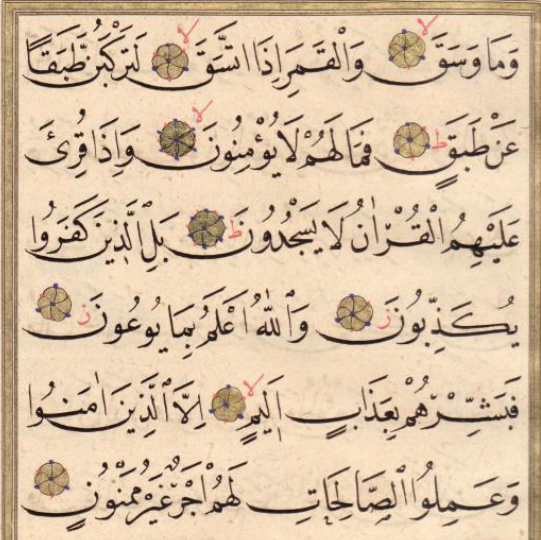 وَمَا وَسَقَ ۙ وَالْقَمَرِ اِذَا اتَّسَقَ ۙ لَتَرْكَبُنَّ طَبَقًا
عَنْ طَبَقٍ ۜ فَمَا لَهُمْ لَا يُؤْمِنُونَ ۙ وَاِذَا قُرِئَ
عَلَيْهِمُ الْقُرْاٰنُ لَا يَسْجُدُونَ ط بَلِ الَّذِينَ كَفَرُوا
يُكَذِّبُونَ ز وَاللّٰهُ اَعْلَمُ بِمَا يُوعُونَ ز
فَبَشِّرْهُمْ بِعَذَابٍ اَلِيمٍ ۙ اِلَّا الَّذِينَ اٰمَنُوا
وَعَمِلُوا الصَّالِحَاتِ لَهُمْ اَجْرٌ غَيْرُ مَمْنُونٍ